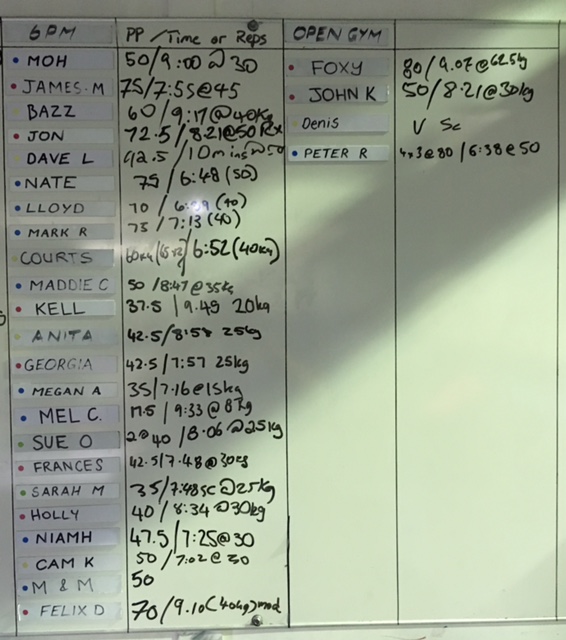 6PM PP / Time or Reps OPEN GYM
MOH 50/9:00 @ 30
JAMES.M 75/7:55@45
BAZZ 60/9:17@40kg
JON 72.5/8:21@50 Rx
DAVE L 92.5/10mins@50
NATE 75/6:48 (50)
LLOYD 70 / (40)
MARK R 75/7:13 (40)
COURTS /6:52 (40kg)
MADDIE C 50/8:47@35kg
KELL 37.5 / 9.49 20kg
ANITA 42.5/8:58 25kg
GEORGIA 42.5/7:57 25kg
MEGAN A 35/7.16@15kg
MEL C. 17.5 / 9:33@8kg
SUE O 2@40/8.06@25kg
FRANCES 42.5/7.48@30kg
SARAH M 35/7:48sc@25kg
HOLLY 40/8:34@30kg
NIAMH 47.5/7:25@30
CAM K 50/7:02@30
M & M 50
FELIX D 70/9.10(40kg)mod
FOXY 80/9.07@62.5kg
JOHN K 50/8:21@30kg
Denis V Sc
PETER R 4x3@80/6:38@50